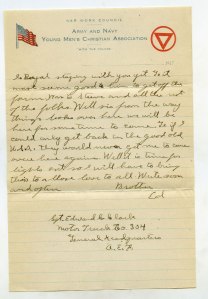 WAR WORK COUNCIL
ARMY AND NAVY
YOUNG MEN'S CHRISTIAN ASSOCIATION
"WITH THE COLORS"
Is Royal staying with you yet. Is it
most seems good to him to get off the
farm. How is Steve and all the rest
of the folks. Well six from the way
things looks over here we will be
here for some time to come. Gee if I
could only get back in the good old
U.S.A. they would never get me to come
over here again. Well it is time for
lights out so I will have to bring
this to a close love to all Write soon
and often Brother
Ed
Sgt Edward C. Clark
Motor Truck Co. 304
General Headquarters
A.E.F.